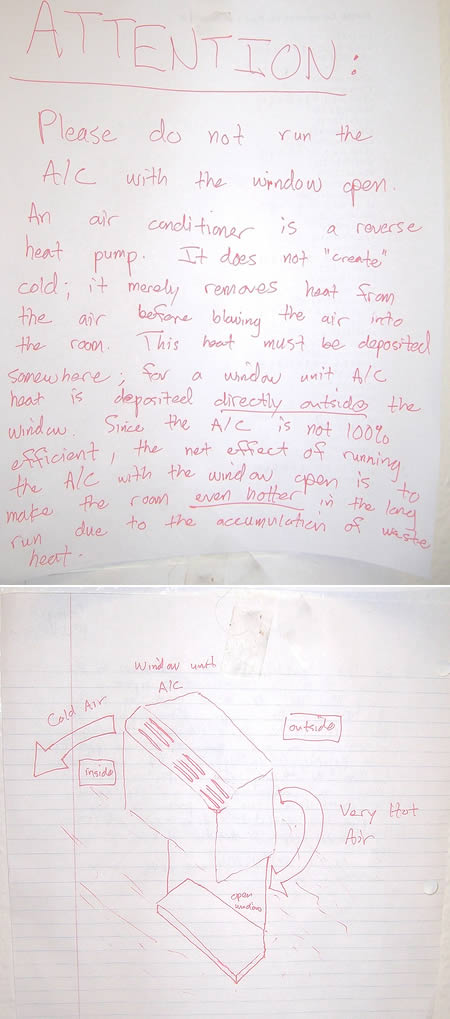 ATTENTION:
Please do not run the
A/C with the window open.
An air conditioner is a reverse
heat pump. It does not "create"
cold; it merely removes heat from
the air before blowing the air into
the room. This heat must be deposited
somewhere; for a window unit A/C
heat is deposited directly outside the
window. Since the A/C is not 100%
efficient, the net effect of running
the A/C with the window open is to
make the room even hotter in the long
run due to the accumulation of waste
heat.
Window unit
A/C
Cold Air
outside
inside
Very Hot
Air
open
window